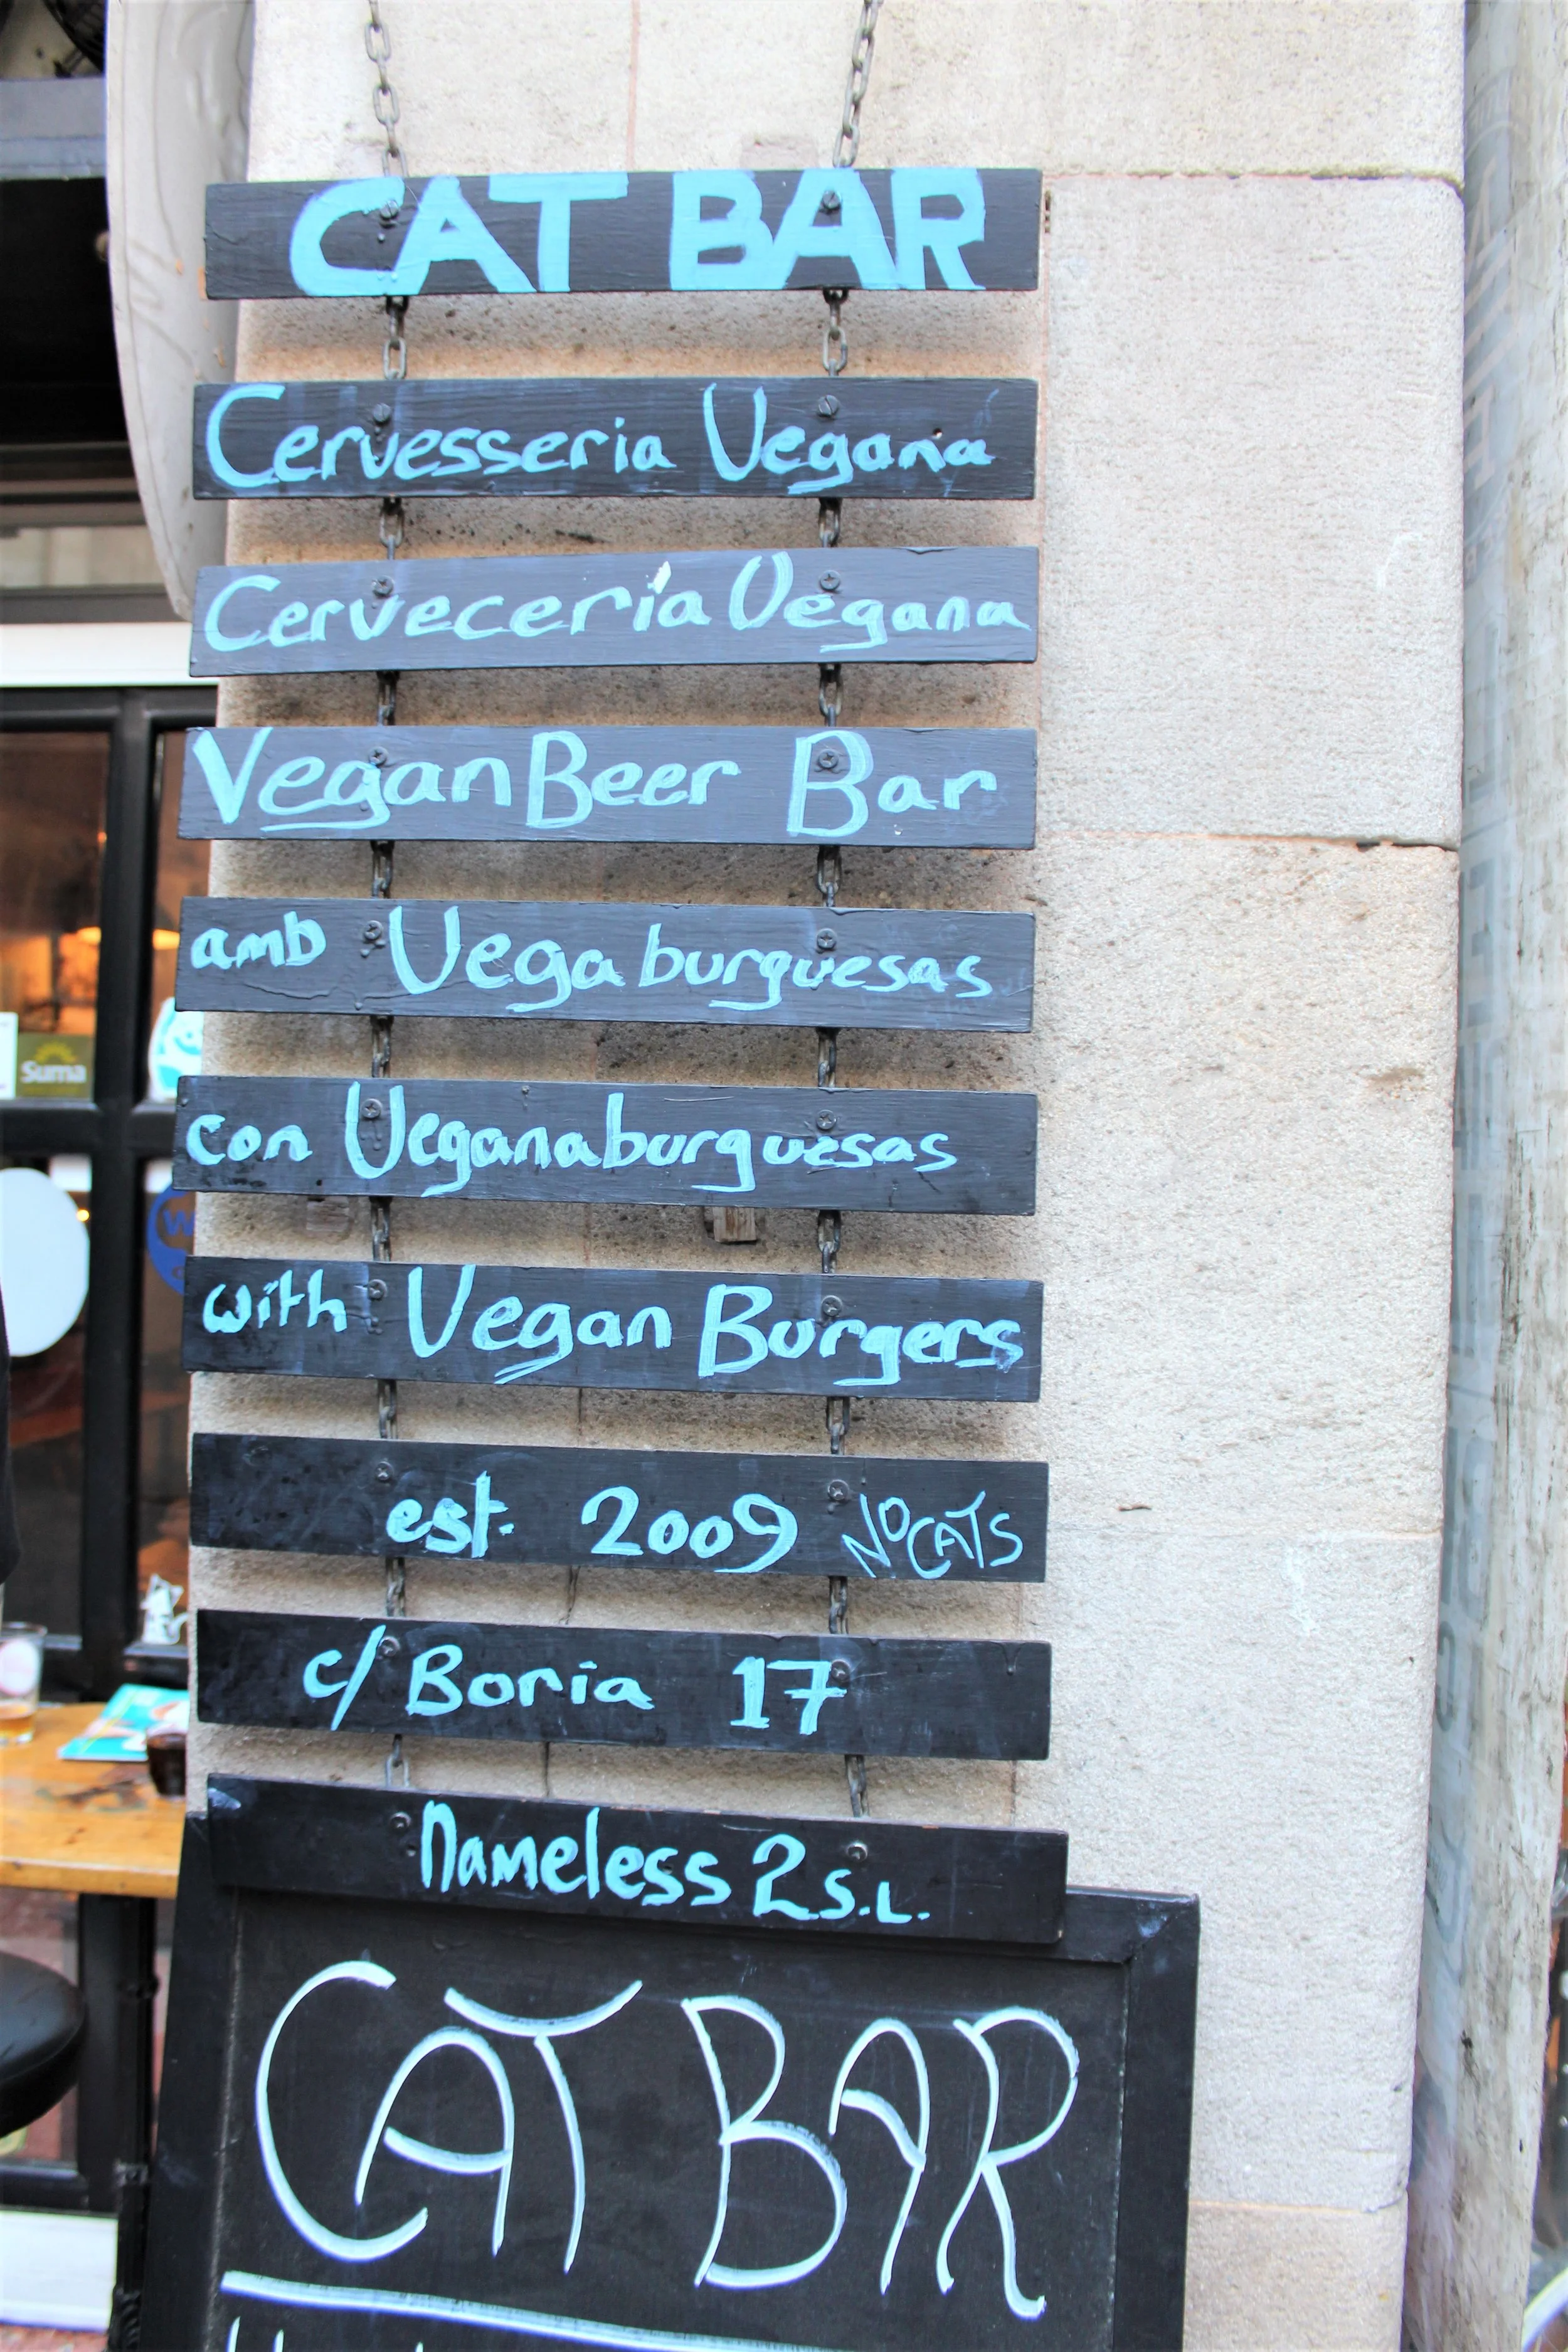 CAT BAR
Cervesseria Vegana
Cervecería Vegana
Vegan Beer Bar
amb Vegaburguesas
con Veganaburguesas
with Vegan Burgers
est. 2009 NO CATS
c/ Boria 17
nameless 2 S.L.
CAT BAR
Suma